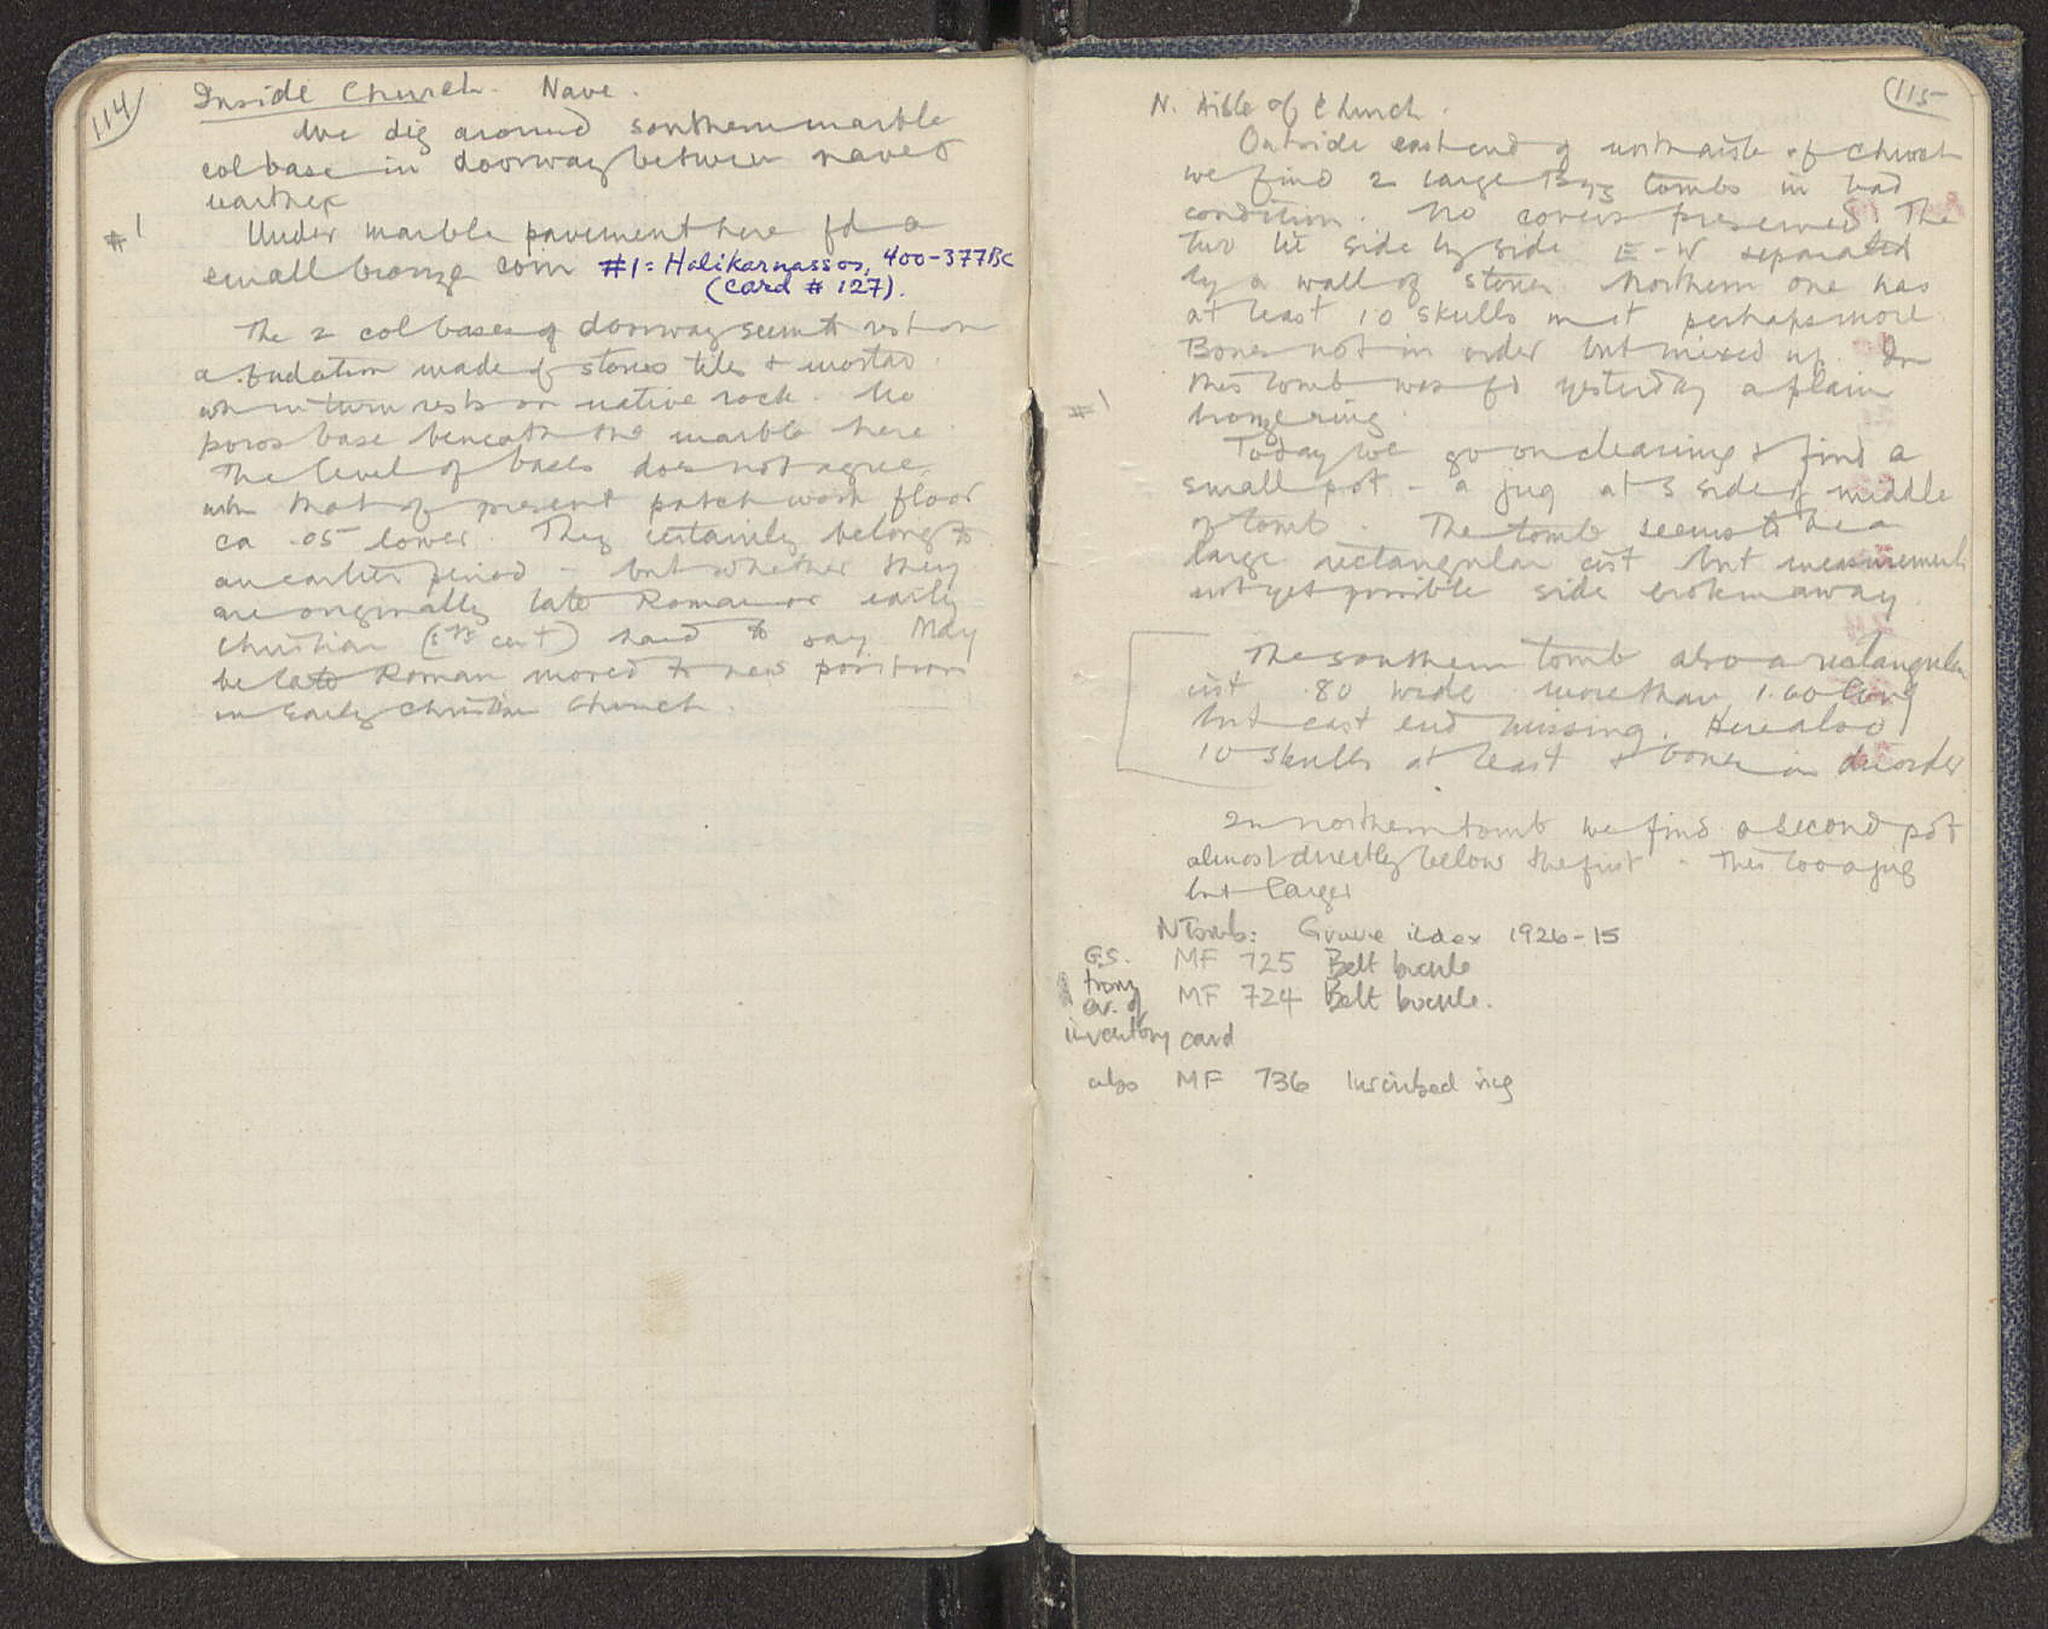 114
Inside Church. Nave.
We dig around southern marble
col base in doorway between nave &
narthex
#1
Under marble pavement here fd a
small bronze coin #1 = Halikarnassos, 400-377 BC
(card # 127).
The 2 col bases of doorway seem to rest on
a fndation made of stones tiles & mortar.
wh in turn rests on native rock. No
poros base beneath the marble here.
The level of bases does not agree
with that of present patchwork floor
ca .05 lower. They certainly belong to
an earlier period - but whether they
are originally late Roman or early
Christian ( cent) hard to say May
be late Roman moved to new position
in Early Christian Church.
115
N. Aisle of Church.
Outside east end of north aisle of church
we find 2 large Byz tombs in bad
condition. No covers preserved. The
two lie side by side E-W separated
by a wall of stones. Northern one has
at least 10 skulls in it perhaps more
Bones not in order but mixed up. In
this tomb was fd yesterday a plain
#1
bronze ring.
Today we go on clearing & find a
small pot - a jug at S side of middle
of tomb. The tomb seems to be a
large rectangular cist but measurements
not yet possible side broken away.
The southern tomb also a rectangular
cist .80 wide more than 1.60 long
but east end missing. Here also
10 skulls at least & bones in disorder
In northern tomb we find a second pot
almost directly below the first - This too a jug
but larger
N Tomb: Grave index 1926-15
G.S. MF 725 Belt buckle
from
ev. of MF 724 Belt buckle.
inventory card
also MF 736 Inscribed ring